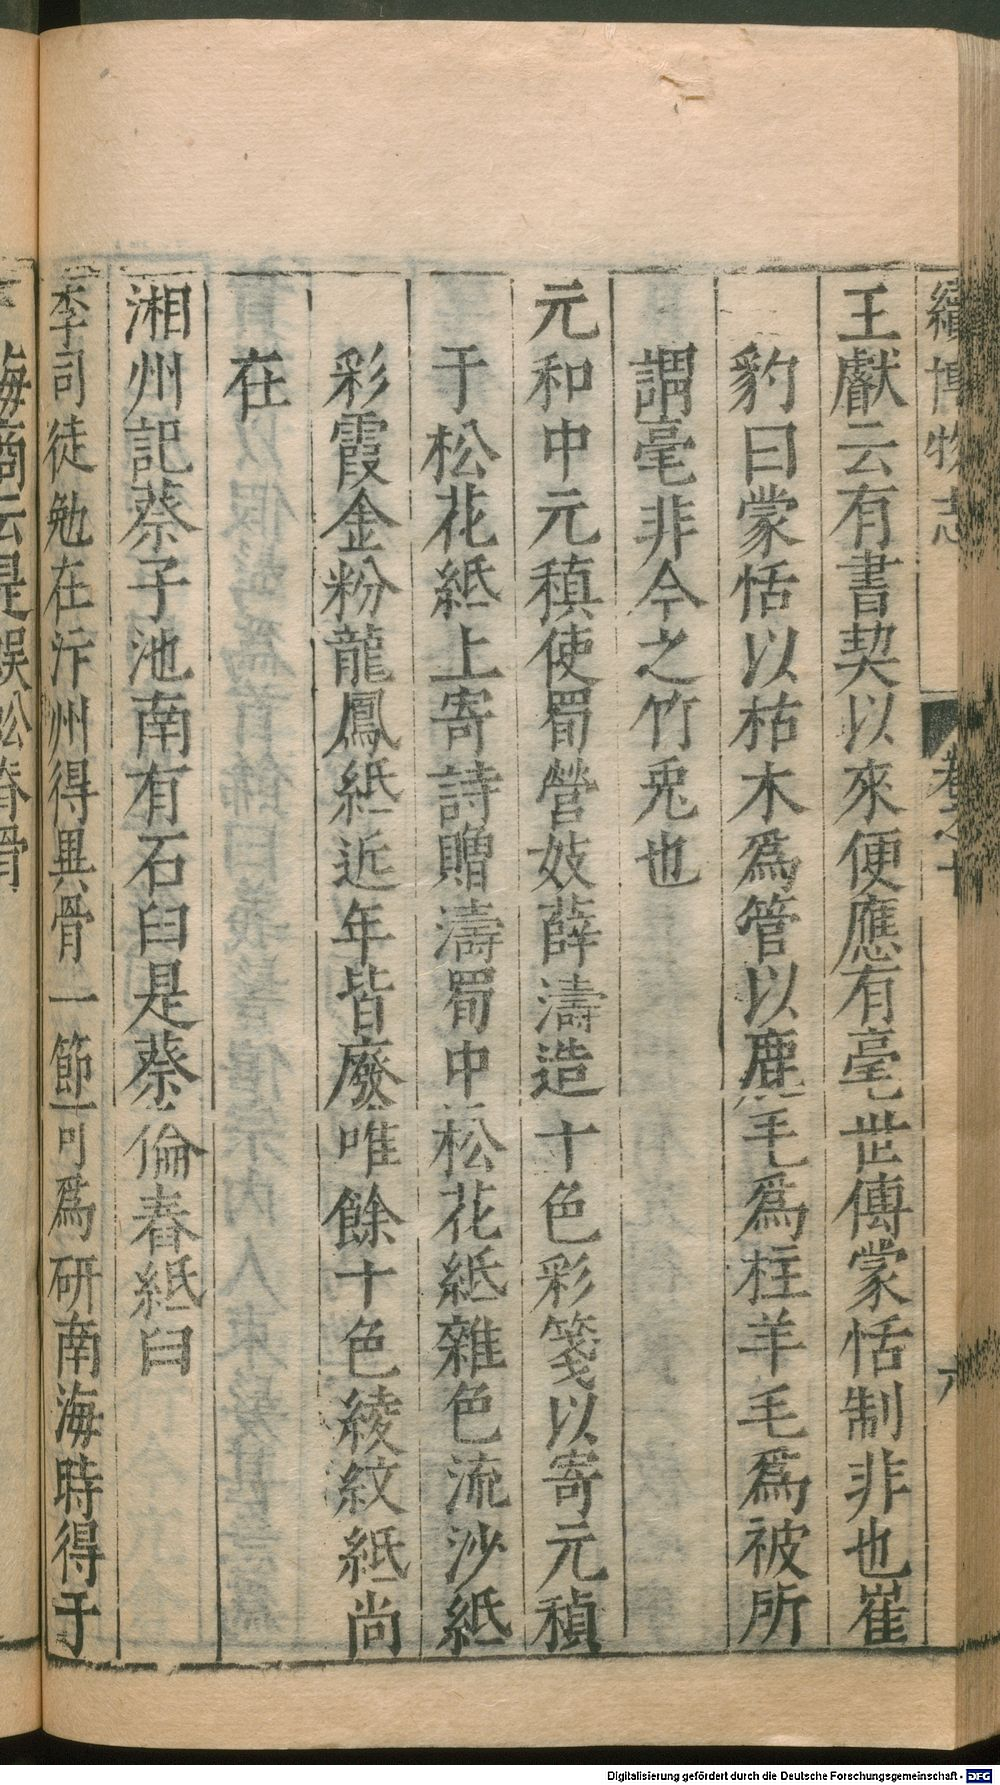 續博物志 卷之十
王獻云有書契以來便應有毫世傳蒙恬制非也崔
豹曰蒙恬以枯木爲管以鹿毛爲柱羊毛爲被所
謂毫非今之竹兎也
元和中元稹使蜀營妓薛濤造十色彩箋以寄元稹
于松花紙上寄詩贈濤蜀中松花紙雜色流沙紙
彩霞金粉龍鳳紙近年皆廢唯餘十色綾紋紙尚
在
湘州記蔡子池南有石臼是蔡倫舂紙臼
李司徒勉在汴州得異骨一節可爲研南海時得于
海商云是蜈蚣脊骨
Digitalisierung gefördert durch die Deutsche Forschungsgemeinschaft - DFG